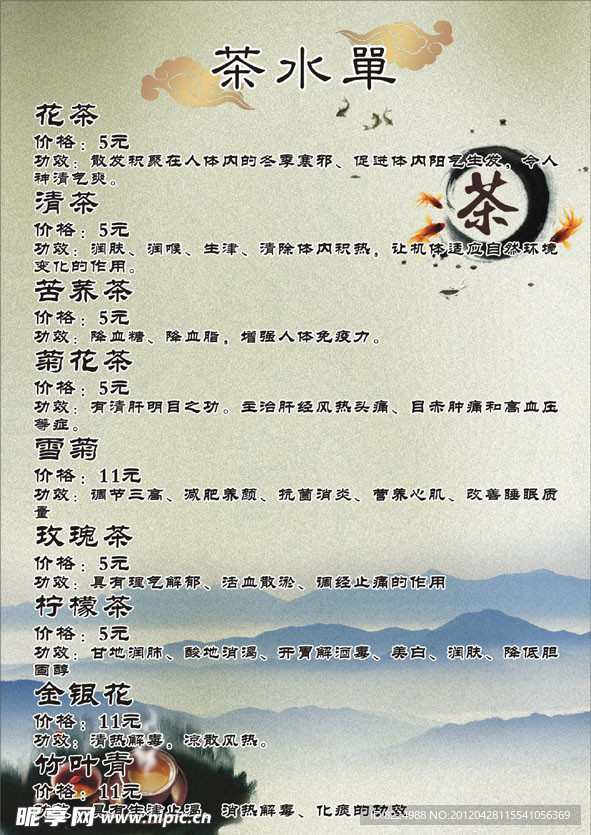 茶水單
花茶
价格：5元
功效：散发积聚在人体内的冬季寒邪、促进体内阳气生发，令人
神清气爽。
茶
清茶
价格：5元
功效：润肤、润喉、生津、清除体内积热，让机体适应自然环境
变化的作用。
苦荞茶
价格：5元
功效：降血糖、降血脂，增强人体免疫力。
菊花茶
价格：5元
功效：有清肝明目之功。主治肝经风热头痛、目赤肿痛和高血压
等症。
雪菊
价格：11元
功效：调节三高、减肥养颜、抗菌消炎、营养心肌、改善睡眠质
量
玫瑰茶
价格：5元
功效：具有理气解郁、活血散淤、调经止痛的作用
柠檬茶
价格：5元
功效：甘地润肺、酸地消渴、开胃解酒毒、美白、润肤、降低胆
固醇
金银花
价格：11元
功效：清热解毒，凉散风热。
竹叶青
价格：11元
功效：具有生津止渴、消热解毒、化痰的功效
昵享网 www.nipic.cn
NO:20120428115541056369